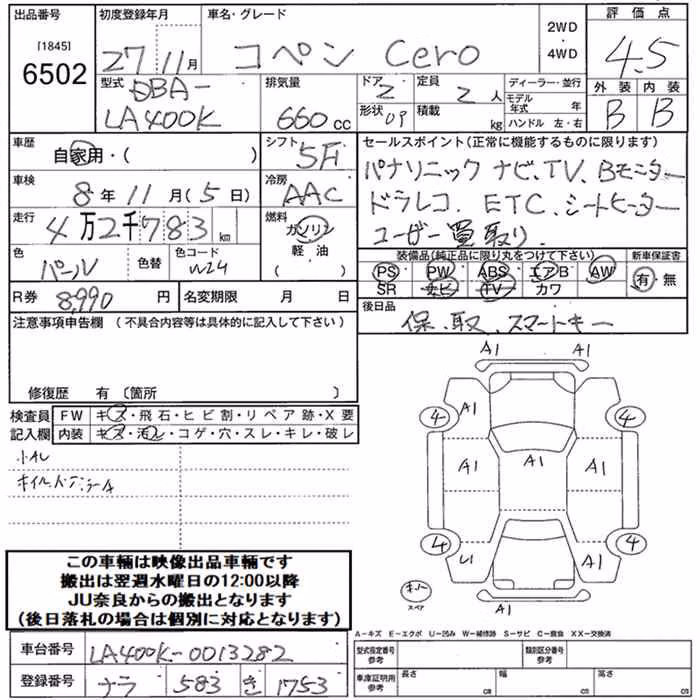 出品番号 初度登録年月 車名・グレード 評価点
[1845] 6502 27 11月 コペン Cero 2WD・4WD 4.5
外装 内装
B B
型式 DBA-LA400K 排気量 660cc ドア 2 定員 2人 ディーラー・並行
形状 OP 積載 kg モデル年式 年
ハンドル 左・右
車歴 自家用・( ) シフト 5F セールスポイント(正常に機能するものに限ります)
車検 8年 11月 (5日) 冷房 AAC パナソニック ナビ、TV、Bモニター
ドラレコ、ETC、シートヒーター
ユーザー買取り、
走行 4万2千783km 燃料 ガソリン 軽・油 ( )
色 パール 色替 色コード W24 装備品(純正品に限り丸をつけて下さい) 新車保証書
PS PW ABS エアB AW 有・無
SR ナビ TV カワ
R券 8,990円 名変期限 月 日 後日品
保、取、スマートキー
注意事項申告欄 (不具合内容等は具体的に記入して下さい)
修復歴 有 〔箇所 〕
検査員記入欄 FW キズ・飛石・ヒビ割・リペア跡・X要
内装 キズ・汚レ・コゲ・穴・スレ・キレ・破レ
A1 A1
4 A1 4
A1 A1 A1
4 U1 A1 4
A1 A1
スペア
この車輌は映像出品車輌です
搬出は翌週水曜日の12:00以降
JU奈良からの搬出となります
(後日落札の場合は個別に対応となります)
A-キズ E-エクボ U-凹み W-補修跡 S-サビ C-腐食 XX-交換済
車台番号 LA400K-0013282 型式指定番号 参考 類別区分番号 参考
登録番号 ナラ 583 き 1753 車庫証明用 参考 長さ cm 幅 cm 高さ cm